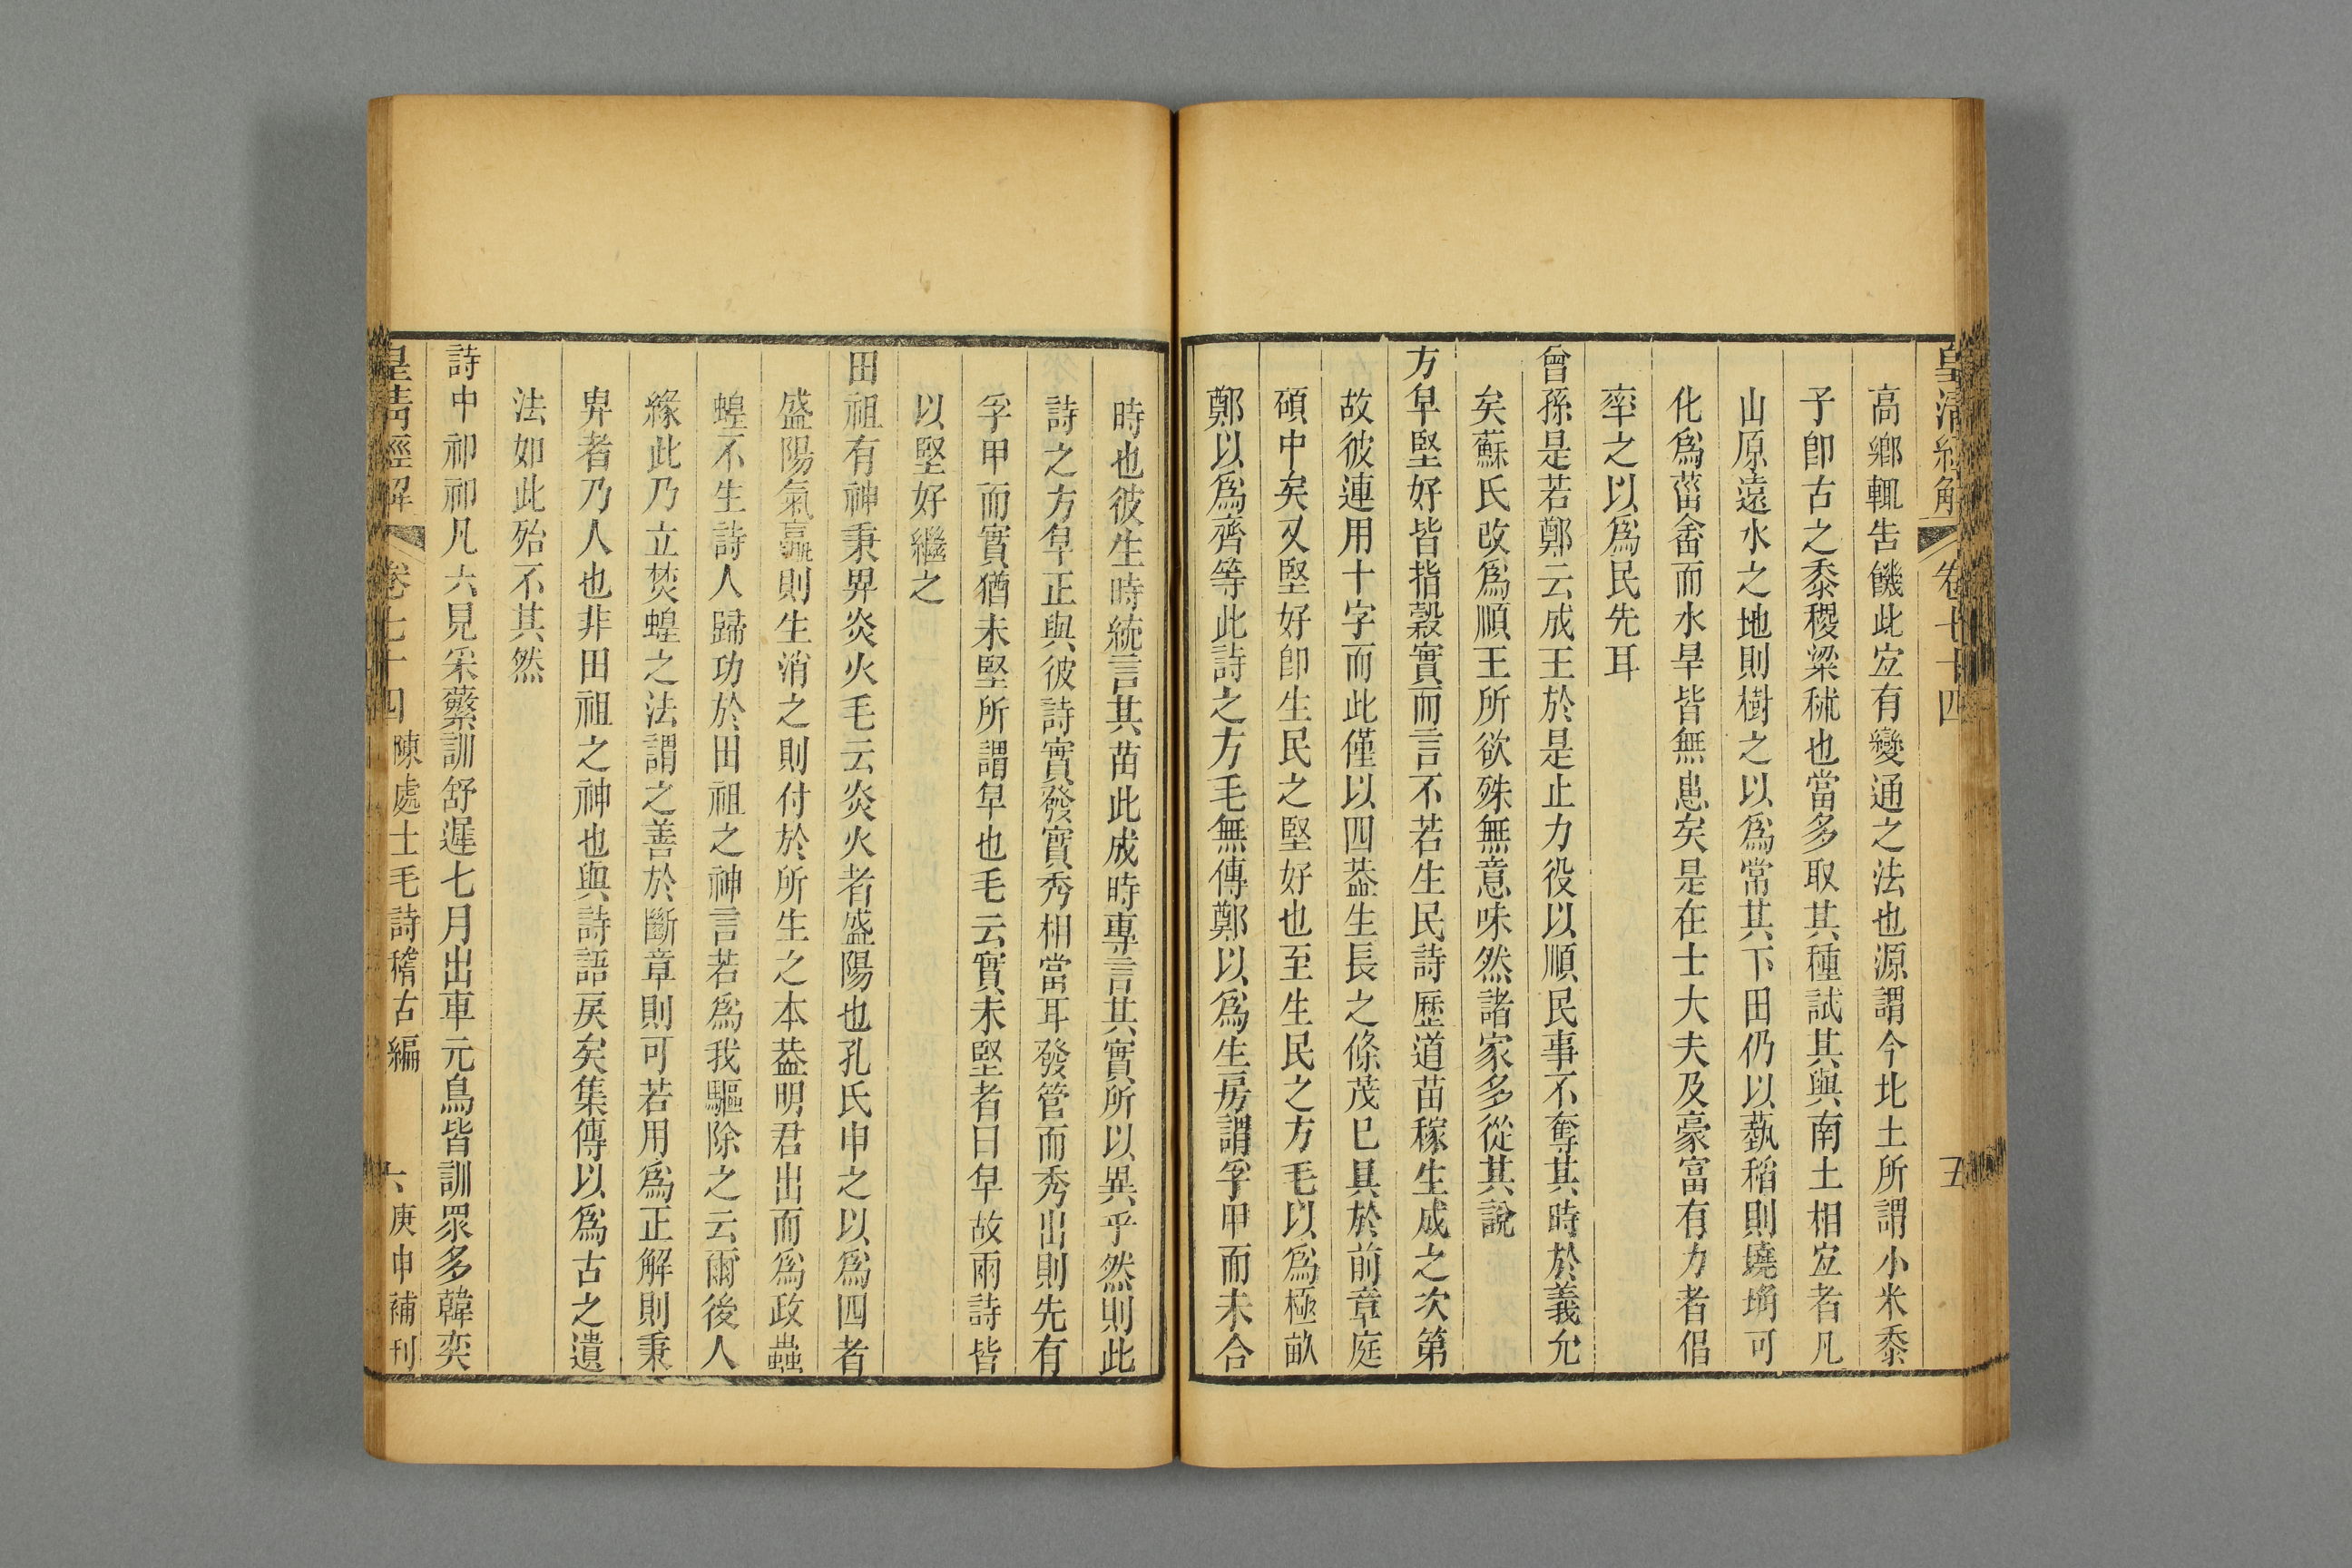 皇清經解 卷七十四 五
高鄉輒告饑此宐有變通之法也源謂今北土所謂小米黍
子卽古之黍稷粱秫也當多取其種試其與南土相宐者凡
山原遠水之地則樹之以爲常其下田仍以蓺稻則墝埆可
化爲菑畬而水旱皆無患矣是在士大夫及豪富有力者倡
率之以爲民先耳
曾孫是若鄭云成王於是止力役以順民事不奪其時於義允
矣蘇氏改爲順王所欲殊無意味然諸家多從其說
方皁堅好皆指穀實而言不若生民詩歷道苗稼生成之次第
故彼連用十字而此僅以四葢生長之條茂已具於前章庭
碩中矣又堅好卽生民之堅好也至生民之方毛以爲極畝
鄭以爲齊等此詩之方毛無傳鄭以爲生房謂孚甲而未合
時也彼生時統言其苗此成時專言其實所以異乎然則此
詩之方皁正與彼詩實發實秀相當耳發管而秀出則先有
孚甲而實猶未堅所謂皁也毛云實未堅者曰皁故兩詩皆
以堅好繼之
田祖有神秉畀炎火毛云炎火者盛陽也孔氏申之以爲四者
盛陽氣贏則生消之則付於所生之本葢明君出而爲政蟲
蝗不生詩人歸功於田祖之神言若爲我驅除之云爾後人
緣此乃立焚蝗之法謂之善於斷章則可若用爲正解則秉
畀者乃人也非田祖之神也與詩語戾矣集傳以爲古之遺
法如此殆不其然
詩中祁祁凡六見采蘩訓舒遲七月出車元鳥皆訓眾多韓奕
皇清經解 卷七十四 陳處士毛詩稽古編 六 庚申補刊